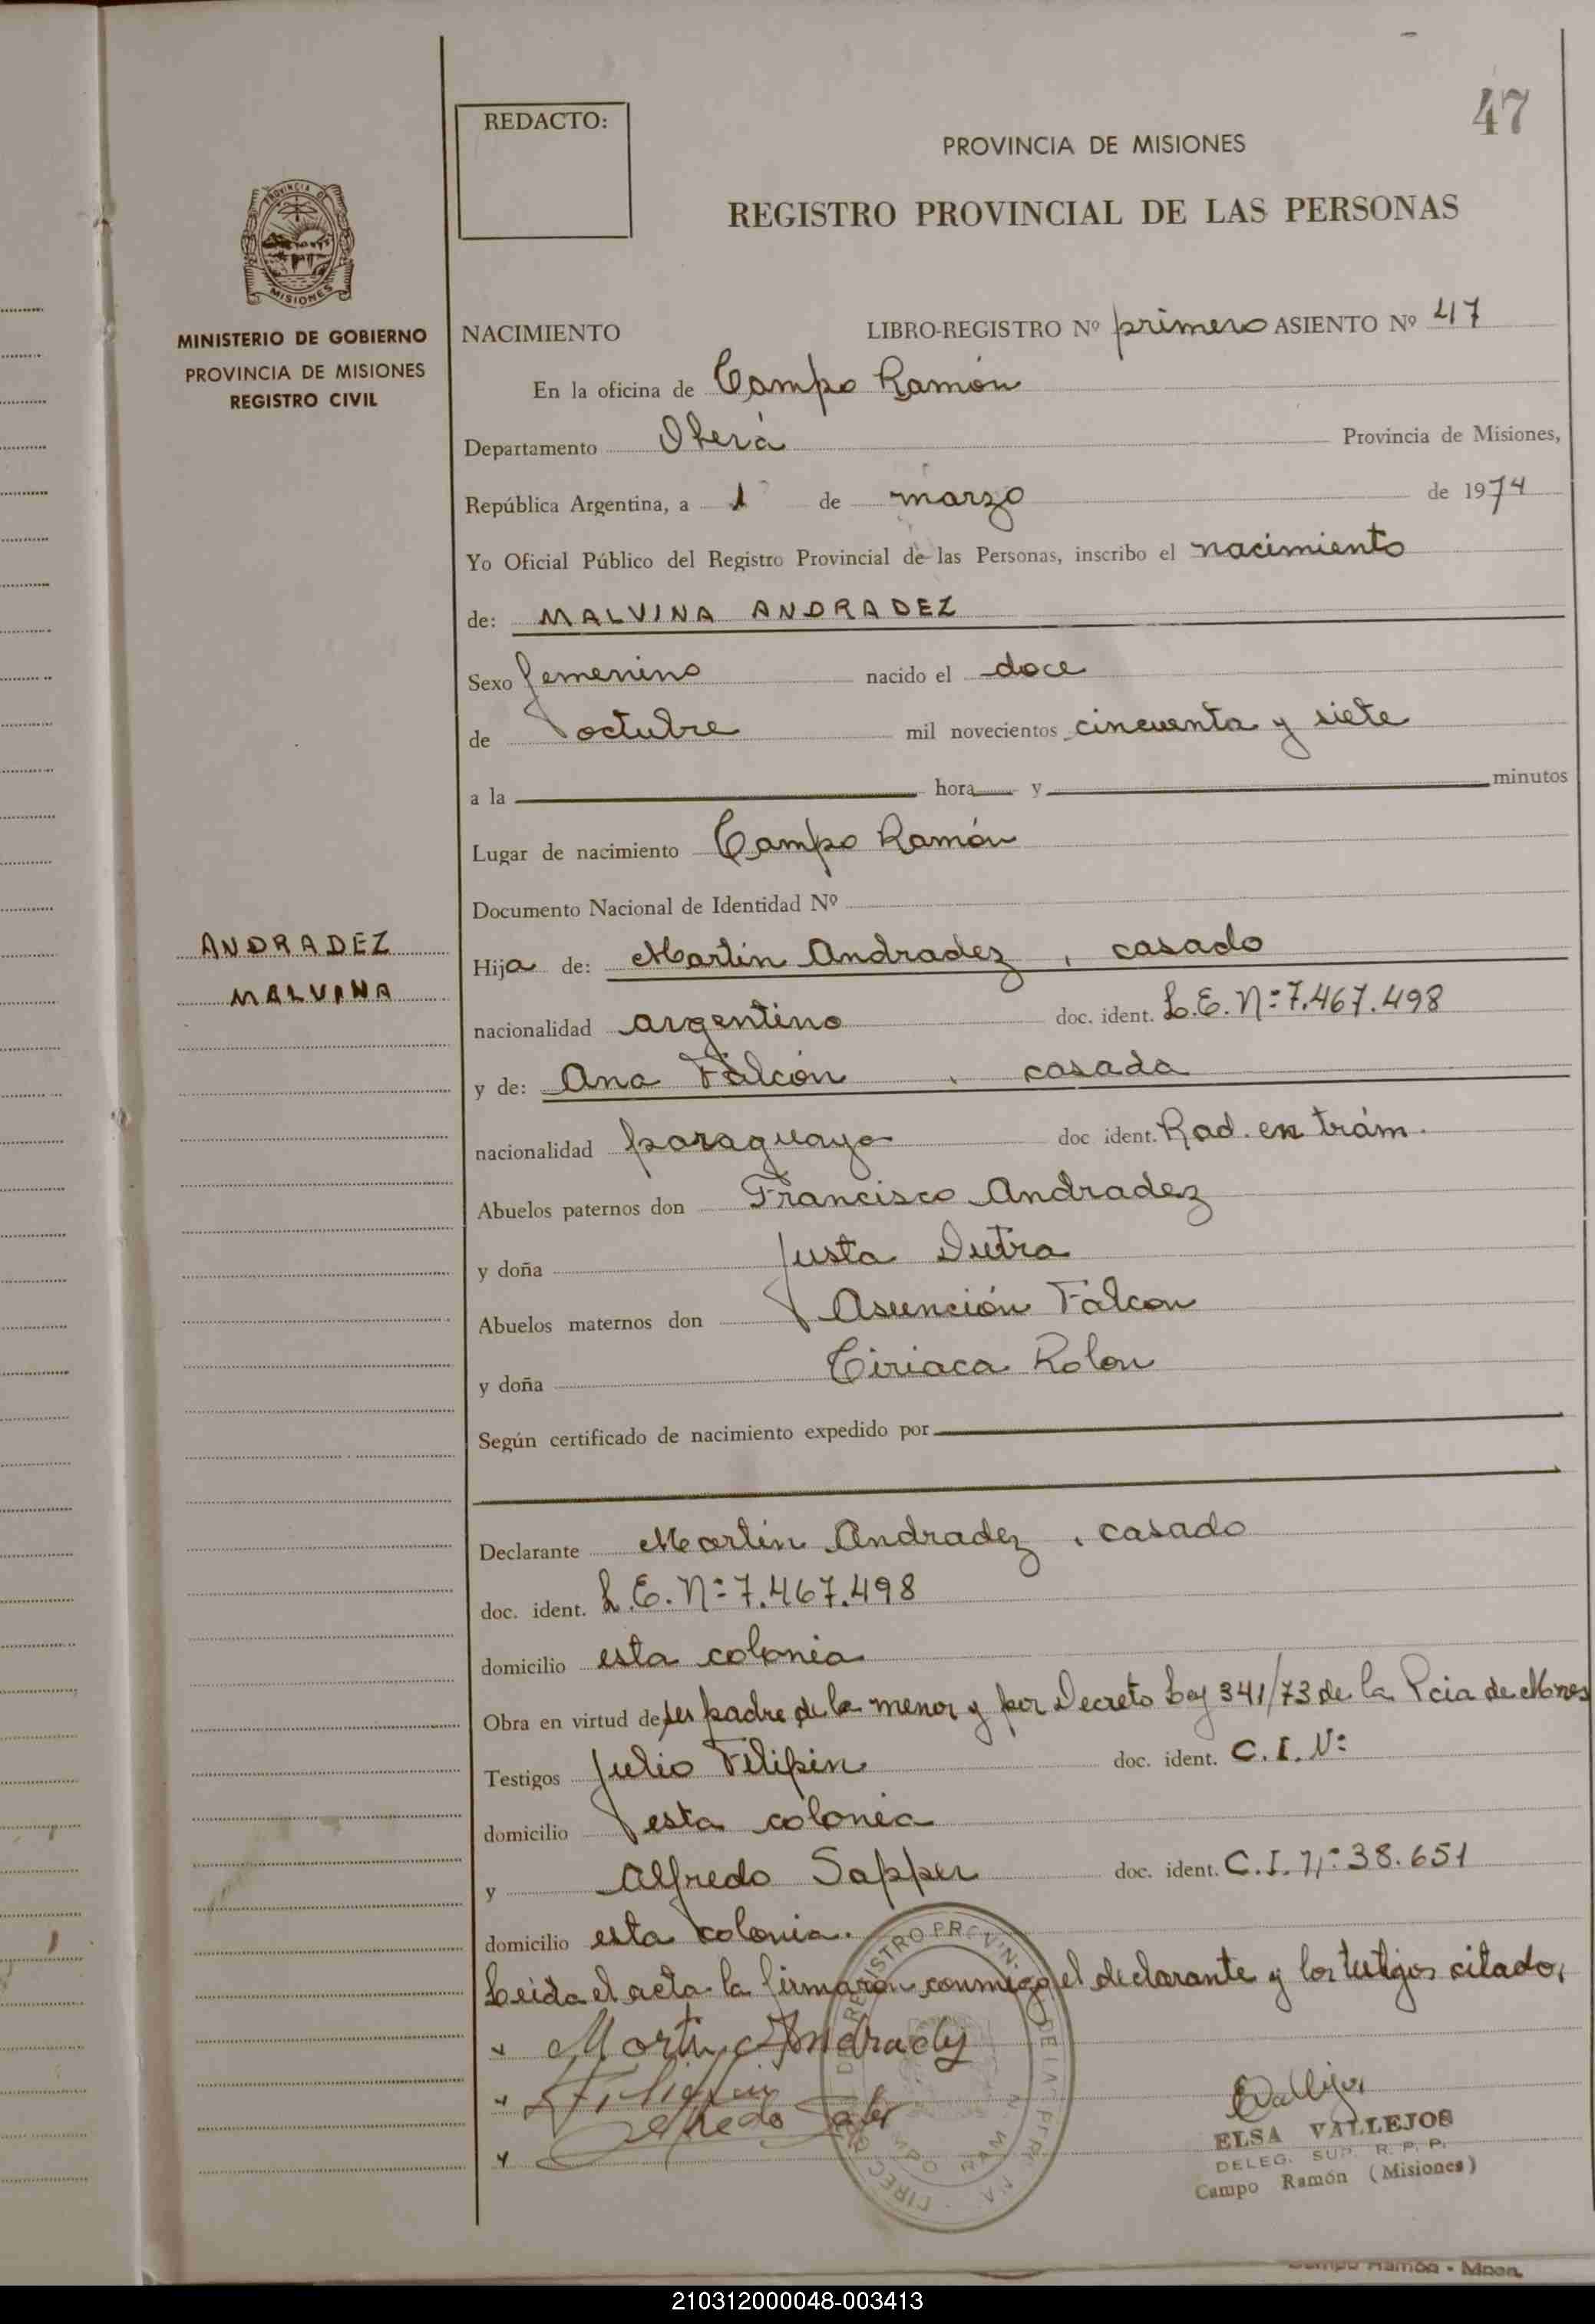 47
REDACTO:
PROVINCIA DE MISIONES
REGISTRO PROVINCIAL DE LAS PERSONAS
PROVINCIA DE
MISIONES
MINISTERIO DE GOBIERNO
PROVINCIA DE MISIONES
REGISTRO CIVIL
NACIMIENTO LIBRO-REGISTRO Nº primero ASIENTO Nº 47
En la oficina de Campo Ramón
Departamento Oberá Provincia de Misiones,
República Argentina, a 1º de marzo de 1974
Yo Oficial Público del Registro Provincial de las Personas, inscribo el nacimiento
de: MALVINA ANDRADEZ
Sexo femenino nacido el doce
de octubre mil novecientos cincuenta y siete
a la hora y minutos
Lugar de nacimiento Campo Ramón
Documento Nacional de Identidad Nº
ANDRADEZ
MALVINA
Hija de: Martin Andradez, casado
nacionalidad argentino doc. ident. L.E. Nº 7.467.498
y de: Ana Falcón, casada
nacionalidad paraguaya doc ident. Rad. en trám.
Abuelos paternos don Francisco Andradez
y doña Justa Dutra
Abuelos maternos don Asunción Falcon
y doña Ciriaca Rolon
Según certificado de nacimiento expedido por
Declarante Martin Andradez, casado
doc. ident. L.E. Nº 7.467.498
domicilio esta colonia
Obra en virtud de ser padre de la menor y por Decreto Ley 341/73 de la Pcia de Mnes
Testigos Julio Filipin doc. ident. C.I. Nº
domicilio esta colonia
y Alfredo Sapper doc. ident. C.I. Nº 38.651
domicilio esta colonia.
Leida el acta la firmaron conmigo el declarante y los testigos citados,
Martin Andradez
Alfredo
EVallejos
ELSA VALLEJOS
DELEG. SUP. R. P. P.
Campo Ramón (Misiones)
Campo Ramón - Mnes.
210312000048-003413